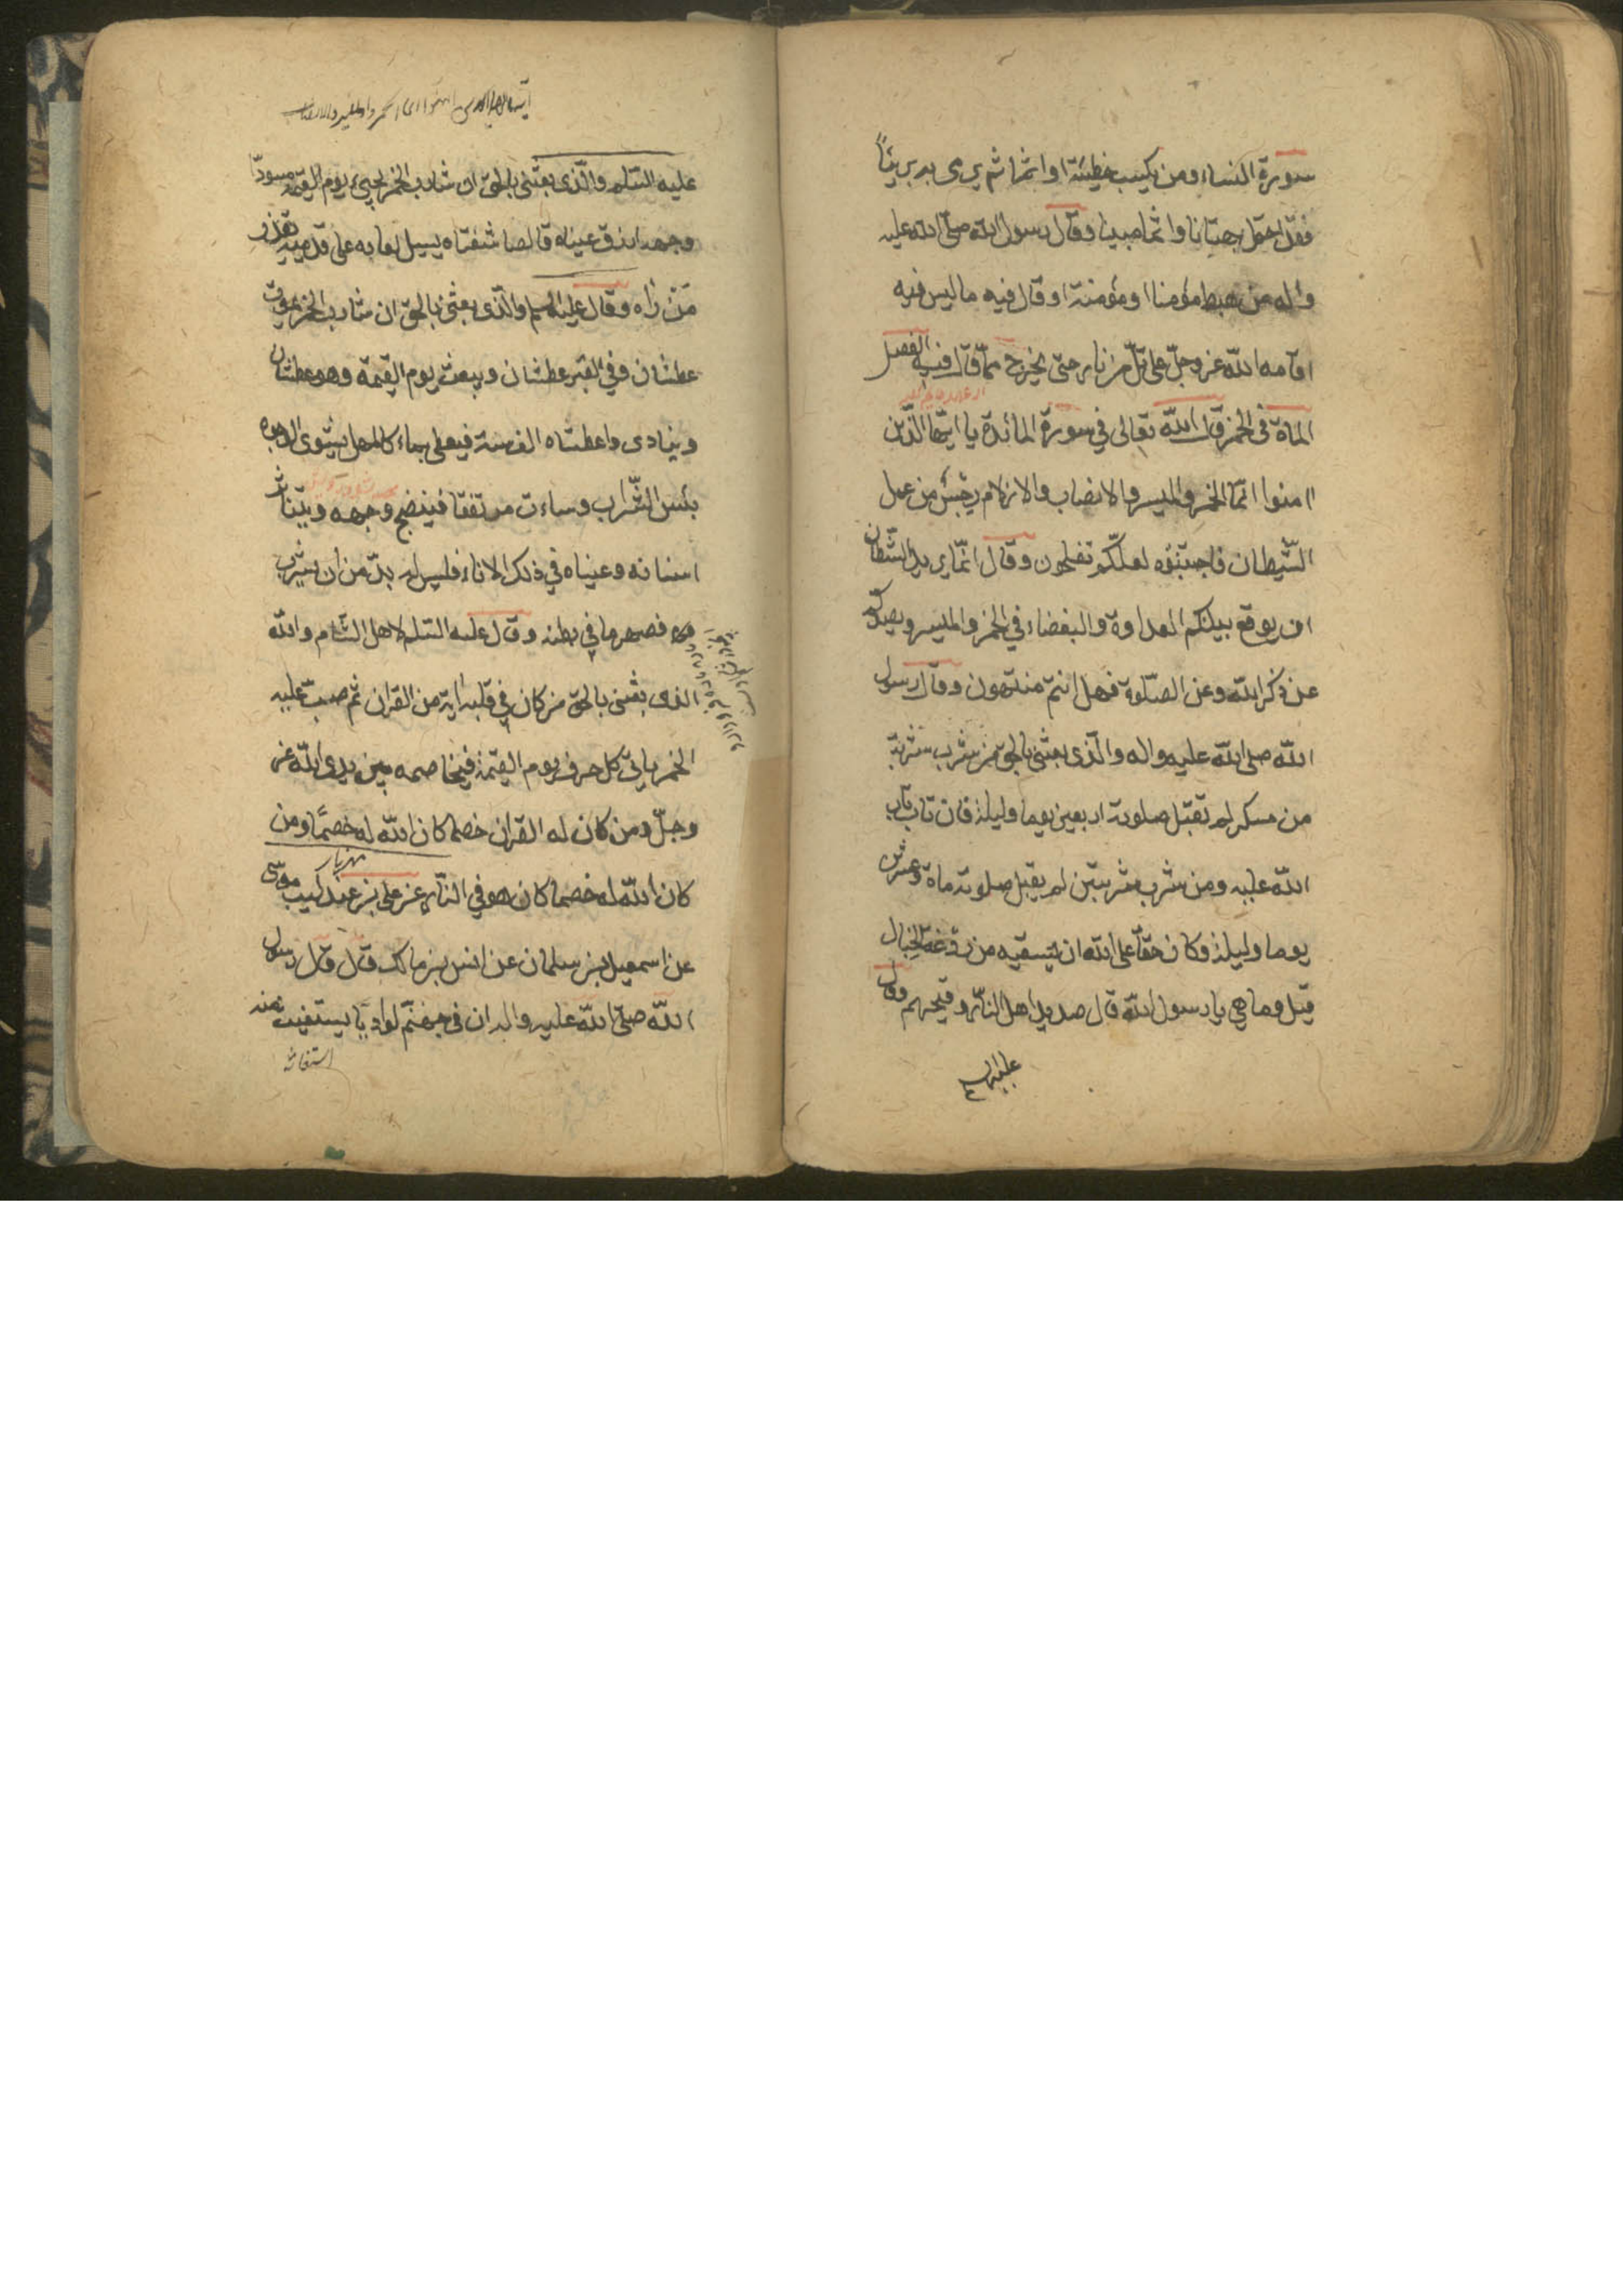 سورة النساء ومن يكسب خطيئة او اثما ثم يرمى به بريئاً
فقد احتمل بهتانا واثما مبينا وقال رسول الله صلى الله عليه
واله من بهت مؤمنا او مؤمنة او قال فيه ما ليس فيه
اقامه الله عز وجل على تل من نار حتى يخرج مما قال فيه الفصل
الماة فى الخمر قال الله تعالى في سورة المائدة يا ايها الذين
امنوا انما الخمر والميسر والانصاب والازلام رجس من عمل
الشيطان فاجتنبوه لعلكم تفلحون وقال انما يريد الشيطان
ان يوقع بينكم العداوة والبغضاء في الخمر والميسر ويصدكم
عن ذكر الله وعن الصلوة فهل انتم منتهون وقال رسول
الله صلى الله عليه واله والذى بعثنى بالحق من شرب شربة
من مسكر لم تقبل صلوته اربعين يوما وليلة فان تاب تاب
الله عليه ومن شرب شربتين لم يقبل صلوته ماة وعشرين
يوما وليلة وكان حقا على الله ان يسقيه من ردغة الخبال
قيل وما هي يا رسول الله قال صديد اهل النار وقيحهم وقال
عليه السلم
عليه السلم والذى بعثنى بالحق ان شارب الخمر يجيء يوم القيمة مسودا
وجهه ازرق عيناه قالصا شفتاه يسيل لعابه على قدميه يقذر
من راه وقال عليه السلم والذى بعثنى بالحق ان شارب الخمر يموت
عطشان وفي القبر عطشان ويبعث يوم القيمة وهو عطشان
وينادى واعطشاه الف سنة فيعطى بماء كالمهل يشوى الوجوه
بئس الشراب وساءت مرتفقا فينضج وجهه ويتناثر
اسنانه وعيناه في ذلك الاناء فليس له بد من ان يشرب
فصهر ما في بطنه وقال عليه السلم لاهل الشام والله
الذى بعثنى بالحق من كان في قلبه اية من القران ثم صب عليه
الخمر ياتى كل حرف يوم القيمة فيخاصمه بين يدى الله عز
وجل ومن كان له القران خصما كان الله له خصمًا ومن
كان الله له خصما كان هو في النار عن على بن عند كيب موسى
مهزيار
عن اسمعيل بن سلمان عن انس بن مالك قال قال رسول
الله صلى الله عليه واله ان فى جهنم لواديا يستغيث منه
استغاثه